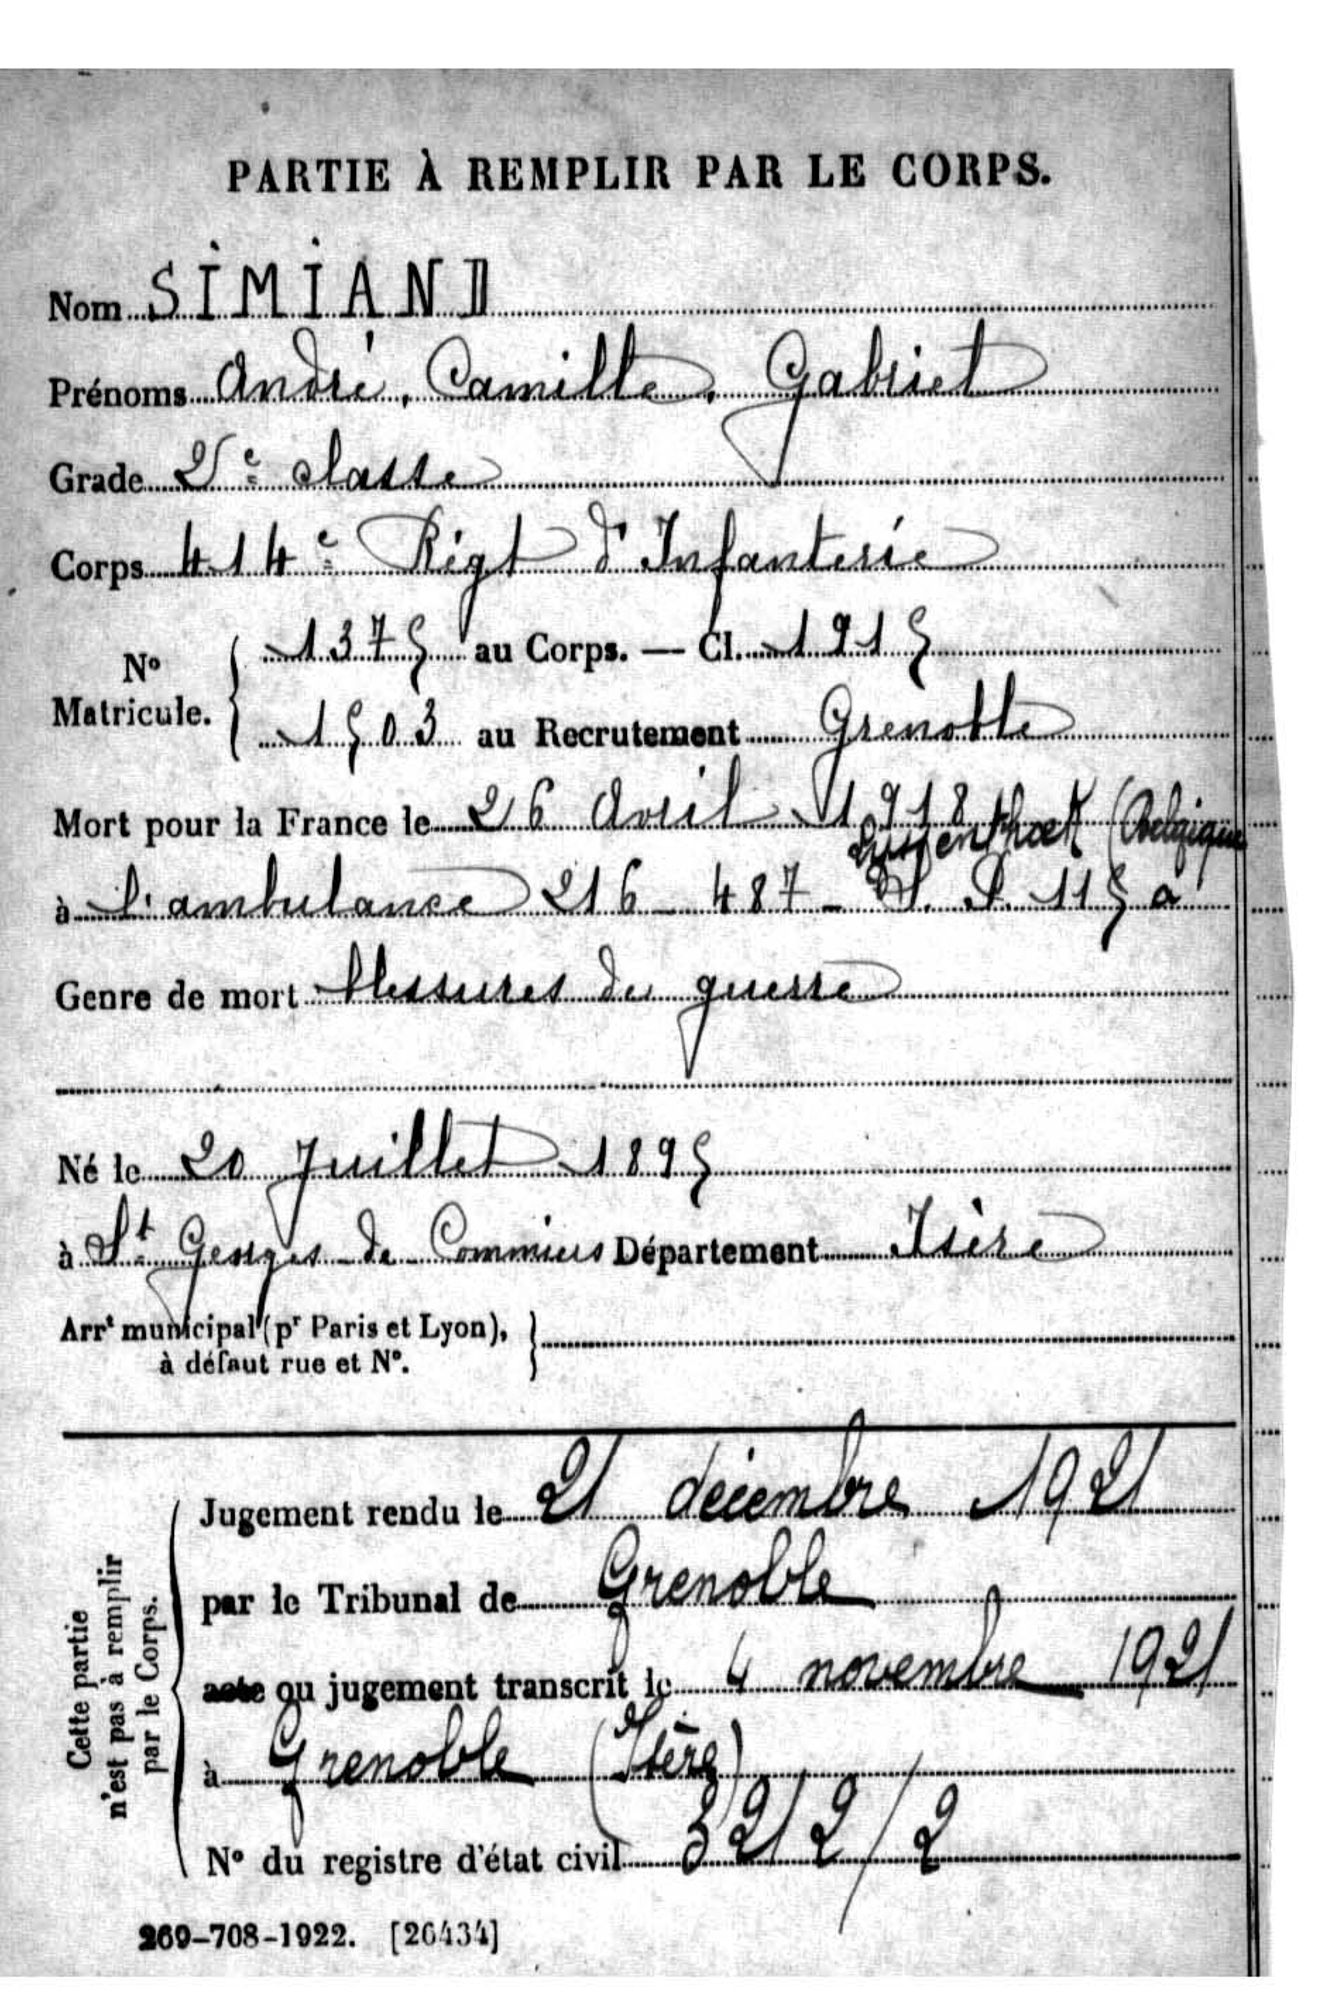 PARTIE À REMPLIR PAR LE CORPS.
Nom SIMIAND
Prénoms André, Camille, Gabriel
Grade 2e classe
Corps 414e Régt d'Infanterie
No Matricule. 1375 au Corps. — Cl. 1915
1503 au Recrutement Grenoble
Mort pour la France le 26 Avril 1918
(Belgique
à l'ambulance 216 - 487 - S. P. 115 à
Genre de mort blessures de guerre
Né le 20 Juillet 1895
à St Georges-de-Commiers Département Isère
Arrt municipal (pr Paris et Lyon),
à défaut rue et No.
Cette partie
n'est pas à remplir
par le Corps.
Jugement rendu le 21 décembre 1921
par le Tribunal de Grenoble
acte ou jugement transcrit le 4 novembre 1921
à Grenoble (Isère)
No du registre d'état civil 3212/2
269-708-1922. [26434]